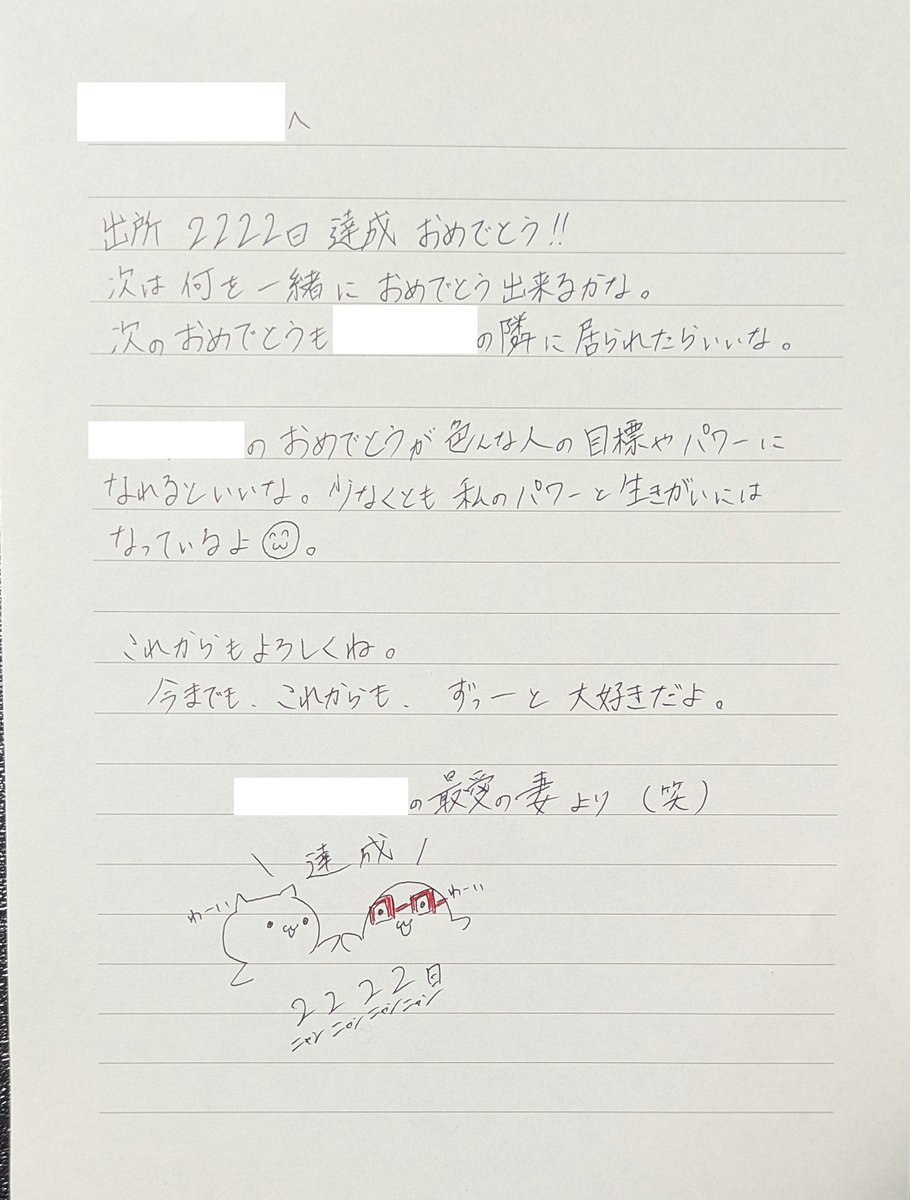 へ
出所 2222日 達成 おめでとう!!
次は 何を 一緒に おめでとう 出来るかな。
次の おめでとうも の 隣に 居られたらいいな。
の おめでとうが 色んな人の 目標や パワーに
なれるといいな。少なくとも 私の パワーと 生きがいには
なっているよ。
これからもよろしくね。
今までも、これからも、ずっーと 大好きだよ。
の 最愛の 妻 より (笑)
\ 達成 /
わーい わーい
2222日
ニャン ニャン ニャン ニャン